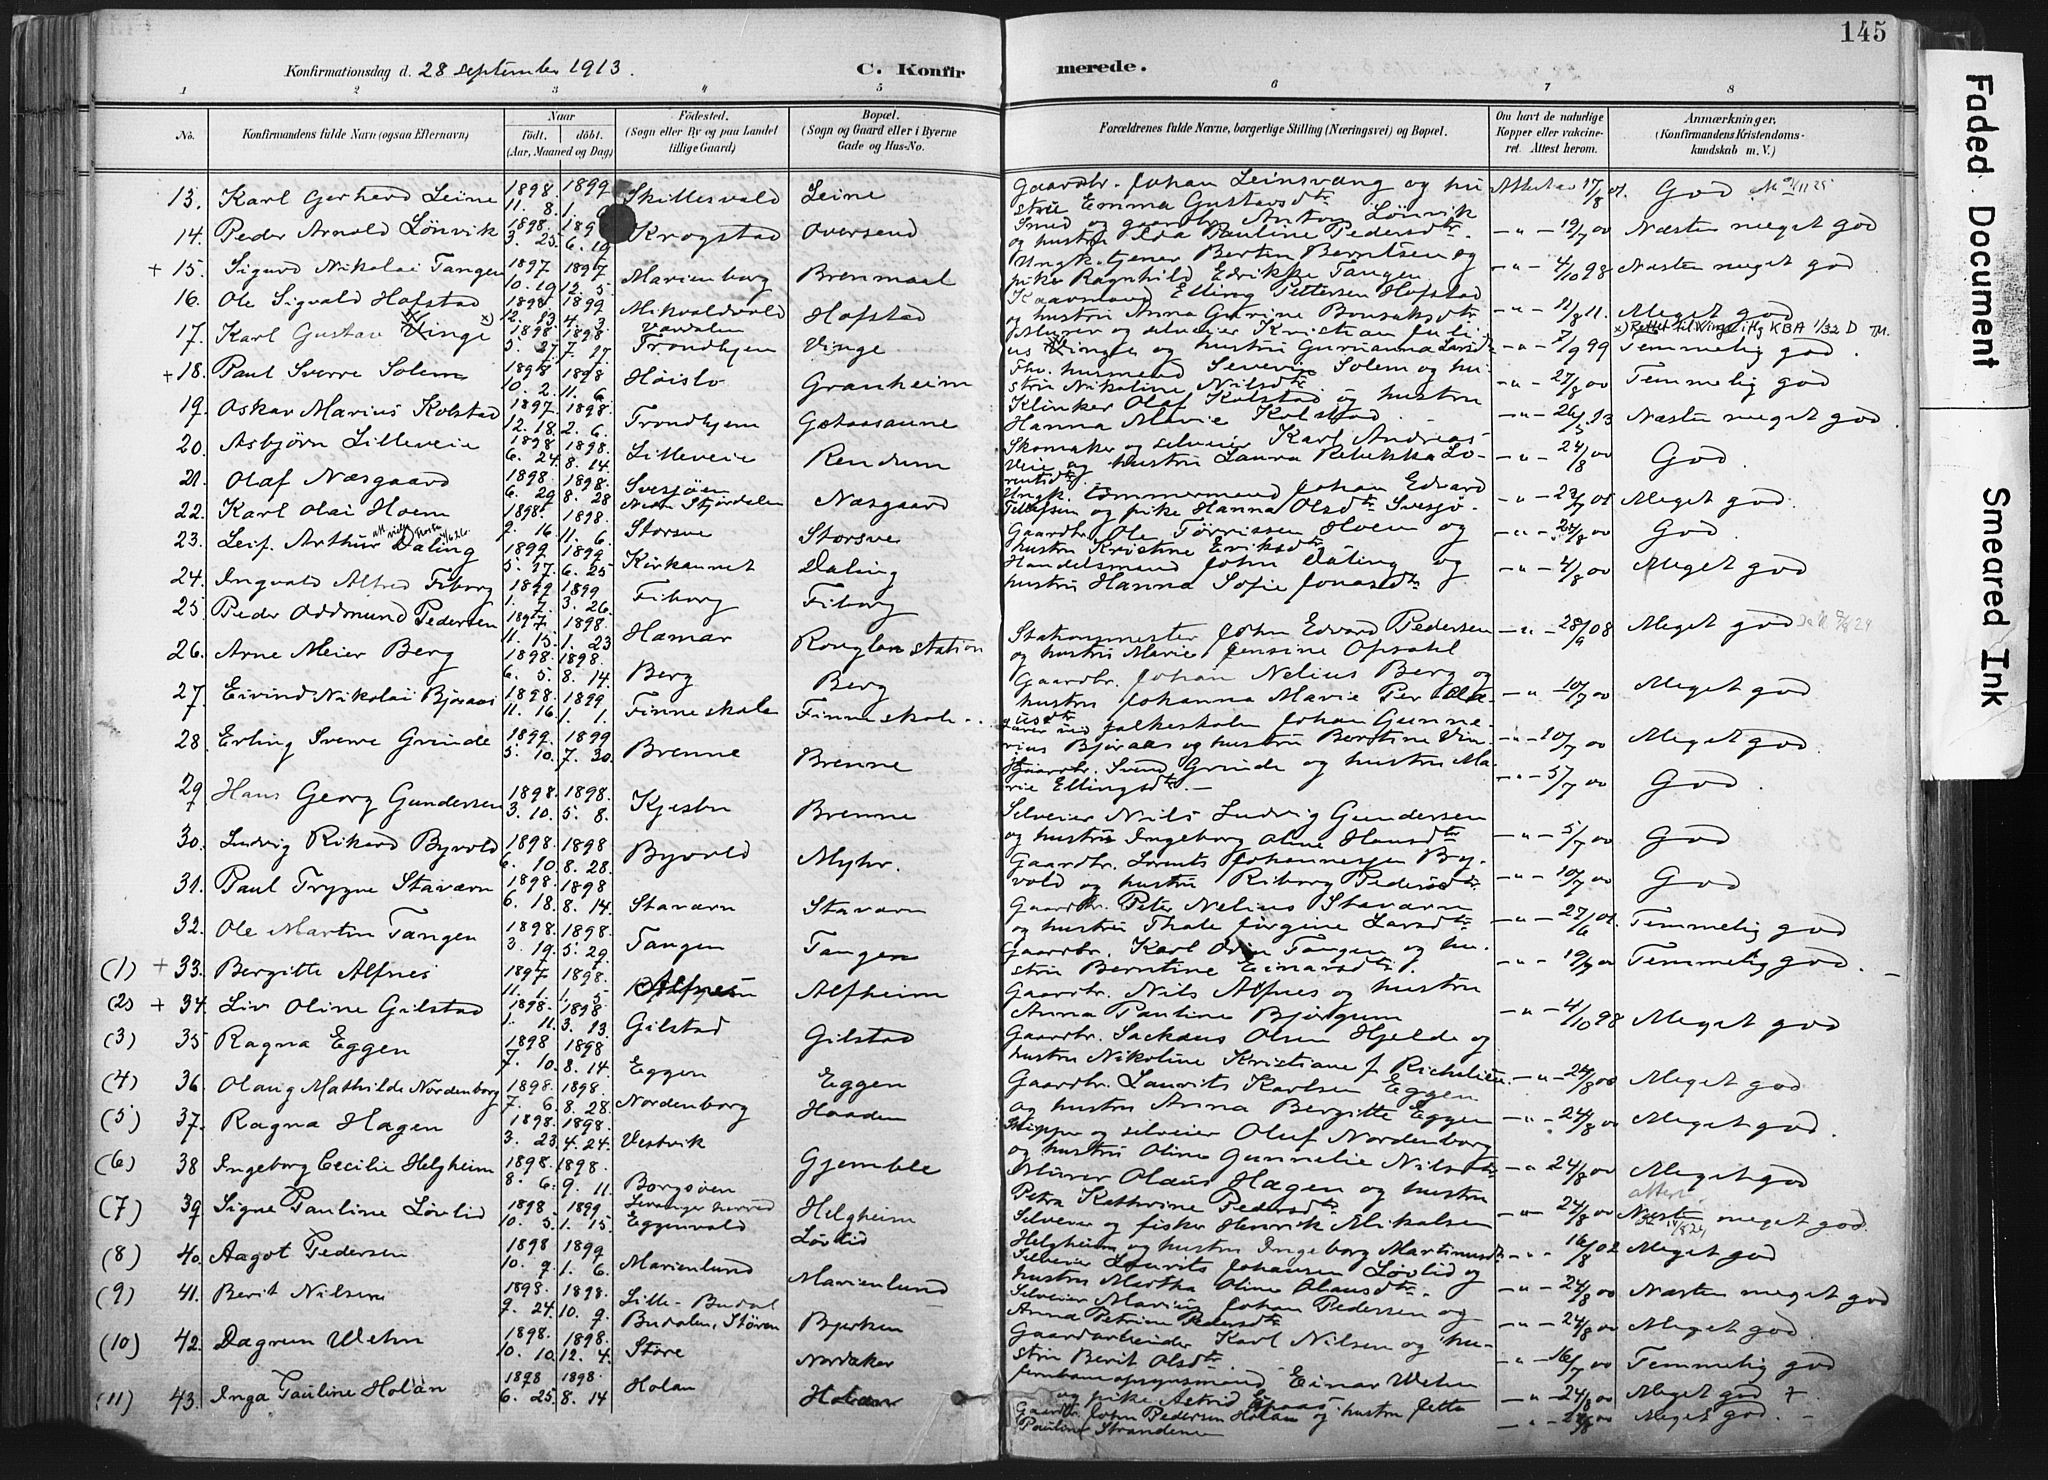 145
Konfirmationsdag d. 28 september 1913.
C. Konfirmerede.
Faded Document
Smeared Ink
1 2 3 4 5 6 7 8
No.
Konfirmandens fulde Navn (ogsaa Efternavn)
Naar
født. døbt.
(Aar, Maaned og Dag)
Fødested.
(Sogn eller By og paa Landet
tillige Gaard)
Bopæl.
(Sogn og Gaard eller i Byerne
Gade og Hus-No.
Forældrenes fulde Navne, borgerlige Stilling (Næringsvei) og Bopæl.
Om havt de naturlige
Kopper eller vakcine-
ret. Attest herom.
Anmærkninger,
(Konfirmandens Kristendoms-
kundskab m. V.)
13. Karl Gerhard Leine 1898 11. 8. 1899 Skillesvald Leine Gaardbr. Johan Leinsvang og hustru Emma Gustavsdtr God
14. Peder Arnold Lønvik 1898. 3. 25. 6. 19 Krogstad Oversand Smed og gaardbr. Anton Lønvik og hustru Ida Pauline Pedersdtr. 19/7 00 Næsten meget god
+ 15. Sigurd Nikolai Tangen 1897 10. 19 1897 12. 5 Marienborg Brenmaal Ungk. tjener Bertin Berntsen og pike Ragnhild Edrikke Tangen 4/10 98 Næsten meget god
16. Ole Sigvald Hofstad 1898 12. 23 1899 4. 3. Hofstad Elling Pettersen Hofstad og hustru Anna Gurine 11/8 11. Meget god
17. Karl Gustav Vinge 1898. 5. 27 1898 7. 17 Værdalen Trondhjem Vinge Murer og selveier Kristian Julius Vinge og hustru Gurianna Larsdtr 7/9 99 x) Rettet til Winge iflg KBA 1/32 D TM. Temmelig god.
+ 18. Paul Sverre Solem 1898 10. 2. 1898 11. 6. Høislo Granheim Fhv. husmand Severin Solem og hustru Nikoline Nilsdtr 27/8 00 Temmelig god
19. Oskar Marius Kolstad 1897. 12. 18. 1898. 2. 6. Trondhjem Gotaasaune Klinker Olaf Kolstad og hustru Hanna Marie Kolstad. 26/5 13 Næsten meget god
20. Asbjørn Lilleveie 1898 6. 24. 1898. 8. 14. Lilleveie Rendum Skomaker og selveier Karl Andreas Veie og hustru Laura Rebekka Lorentsdtr. 24/8 00 God.
21. Olaf Næsgaard 1898 6. 29 1898. 8. 28 Svesjøen Nedre Stjørdalen Næsgaard Ungk. tømmermand Johan Edvard Tellefsen og pike Hanna Olsdtr Svesjø. Meget god.
22. Karl Olai Hoem 1898. 9. 16. 1898. 11. 6. Storsve Storsve Gaardbr. Ole Tørrissen Hoem og hustru Kristine Eriksdtr God.
23. Leif. Arthur Daling 1899 5. 27 1899 6. 25 Kirkaunet Daling Handelsmand John Daling og hustru Hanna Sofie Jonasdtr 4/8 00 Meget god
24. Ingvald Alfred Fiborg 1899 1. 7. 1899 3. 26. Fiborg Fiborg
25 Peder Oddmund Pedersen 1897 11. 15. 1898. 1. 23 Hamar Ronglan station Stationsmester John Edvard Pedersen og hustru Marie Jensine Opdahl 28/9 08 Meget god
26. Arne Meier Berg 1898. 6. 5. 1898. 8. 14. Berg Berg Gaardbr. Johan Nelius Berg og hustru Johanna Marie 10/7 00 Meget god
27. Eivind Nikolai Bjøraas 1898 11. 16. 1899 1. 1. Finneskole Finneskole Lærer ved folkeskolen Johan Gunnerius Bjøraas og hustru Berntine 10/7 00 Meget god.
28 Erling Sverre Grinde 1899 5. 10. 1899 7. 30. Brenne Brenne Gaardbr. Svend Grinde og hustru Marie Ellingsdtr. 5/7 00 God.
29 Hans Georg Gundersen 1898. 3. 10. 1898. 5. 8. Brenne Selveier Nils Ludvig Gundersen og hustru Ingeborg Oline Hansdtr 5/7 00 God
30. Ludvig Rikard Byvold 1898. 6. 10. 1898 8. 28. Byvold Myhr. Gaardbr. Lorents Johannesen Byvold og hustru Riborg Pedersdtr. 10/7 00 God
31. Paul Trygve Staværn 1898. 6. 18. 1898 8. 14. Staværn Staværn Gaardbr. Peter Nelius Staværn og hustru Thale Jørgine Larsdtr 27/6 01. Temmelig god
32. Ole Martin Tangen 1898. 3. 19. 1898. 5. 29. Tangen Tangen Gaardbr. Karl Odin Tangen og hustru Berntine Einarsdtr. 19/7 00 Temmelig god.
(1) + 33. Bergitte Alfnes 1897 11. 1. 1898. 1. 5 Alfheim Gaardbr. Nils Alfnes og hustru Anna Pauline Bjørgum 4/10 98 Meget god
(2) + 34. Liv Oline Gilstad 1898. 1. 11. 1898 3. 13. Gilstad Gilstad Gaardbr. Sackæus Olsen Hjelde og hustru Nikoline Kristiane f. Richelieu. 24/8 00 Meget god
(3) 35 Ragna Eggen 1898 7. 10. 1898 8. 14. Eggen Eggen Gaardbr. Laurits Karlsen Eggen og hustru Anna Bergitte Eggen 24/8 00 Meget god.
(4) 36. Olaug Mathilde Nordenborg 1898. 7. 6. 1898. 8. 28. Nordenborg Haaden Skipper og selveier Oluf Nordenborg og hustru Oline Gunnelie Nilsdtr 24/8 00 Meget god
(5) 37. Ragna Hagen 1898. 3. 23. 1898. 4. 24. Vestvik Gjemble Murer Olaus Hagen og hustru Petra Kathrine Pedersdtr. 24/8 00 Næsten meget god.
(6) 38 Ingeborg Cecilie Helgheim 1898. 8. 6. 1898. 9. 11. Borgsøen Levanger herred Helgheim Selveier og fisker Henrik Mikalsen Helgheim og hustru Ingeborg Martinusdtr 16/8 02 Meget god
(7) 39 Signe Pauline Løvlid 1898 10. 5. 1899. 1. 15. Eggenvald Løvlid Selveier Laurits Johansen Løvlid og hustru Martha Oline Olausdtr. 24/8 00 Næsten meget god
(8) 40. Aagot Pedersen 1898 10. 9. 1899 1. 6. Marienlund Marienlund Selveier Marius Johan Pedersen og Anna Petrine Pedersdtr 24/8 00 Meget god.
(9) 41. Berit Nilsen 1898. 9. 24. 1898. 10. 9. Lille-Budal Budalen, Støren Bjerken Gaardarbeider Karl Nilsen og hustru Berit Olsdtr. 16/7 00 Temmelig god
(10) 42. Dagrun Wehn 1898. 10. 10. 1898. 12. 4. Støre Nordaker Jernbaneopsynsmand Einar Wehn og pike Astrid 24/8 00 Meget god
(11) 43. Inga Pauline Holan 1898 6. 25. 1898. 8. 14 Holan Holan Gaardbr. John Pedersen Holan og hustru Jette Pauline Strandene 24/8 00 Meget god.